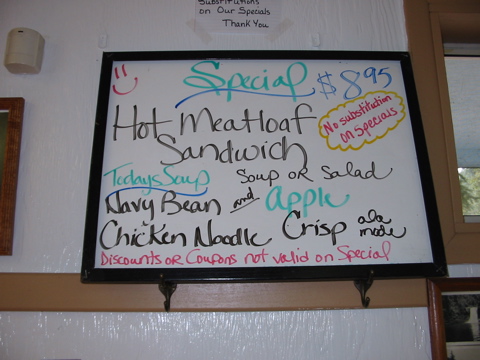 Substitutions
on Our Specials
Thank You
Special $8.95
Hot Meatloaf
Sandwich
No substitution
on specials
Soup or Salad
Todays Soup
Navy Bean and
Chicken Noodle
Apple
Crisp ala mode
Discounts or Coupons not valid on Special